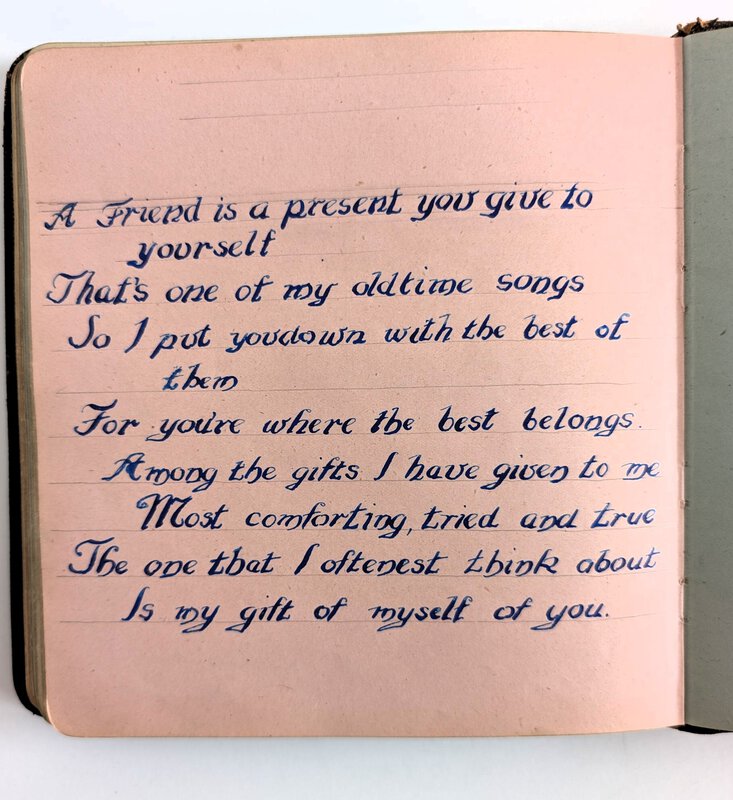 A Friend is a present you give to
yourself
That's one of my oldtime songs
So I put youdown with the best of
them
For you're where the best belongs.
Among the gifts I have given to me
Most comforting, tried and true
The one that I oftenest think about
Is my gift of myself of you.